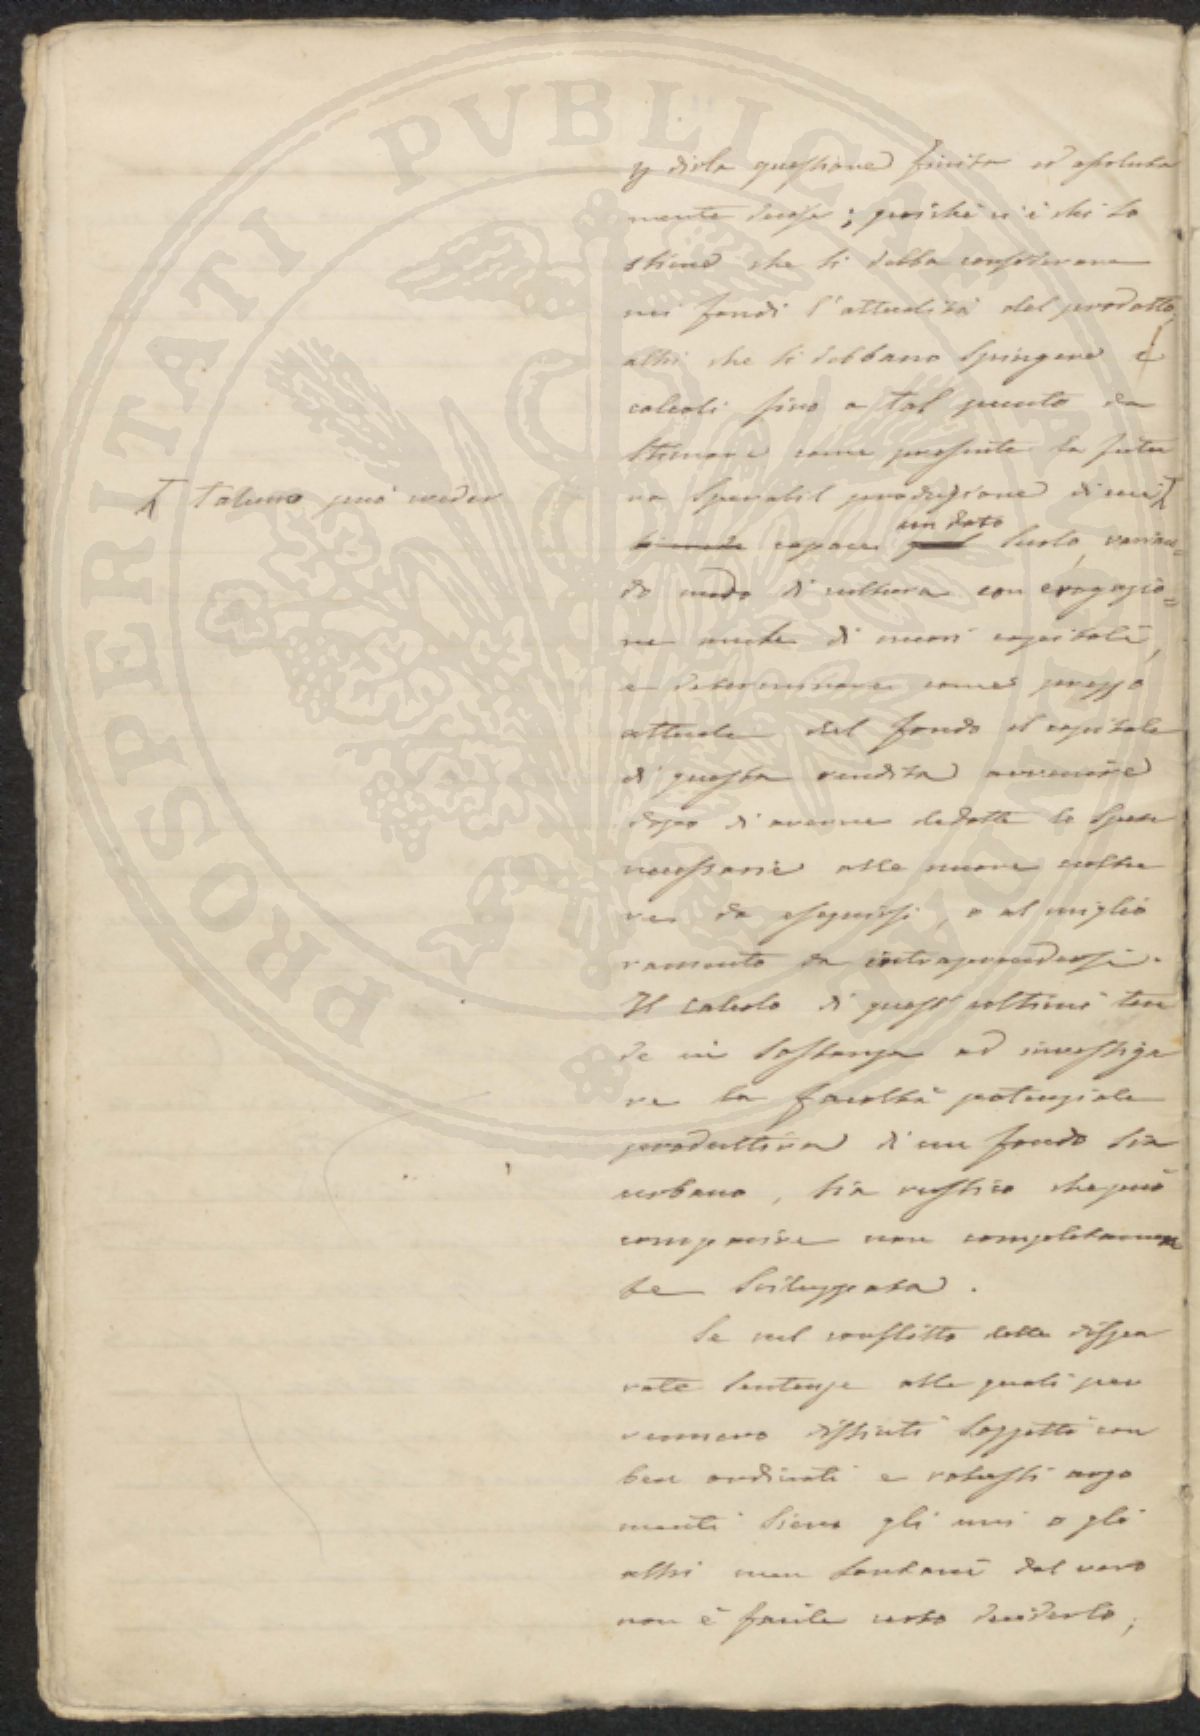 PROSPERITATI PVBLICAE AVGENDAE
dirla questione finita ed assoluta
mente decisa; poichè vi è chi so
stiene che si debba considerare
nei fondi l'attualità del prodotto,
altri che si debbano spingere i
calcoli fino a tal punto da
stimare come presente la futu
ra sperabil produzione di cui
Taluno può veder
capace un dato suolo, varian=
do modo di cultura con erogazio=
ne anche di nuovi capitali,
e determinare come prezzo
attuale del fondo il capitale
di questa rendita avvenire
dopo di averne dedotte le spese
necessarie alle nuove coltu
re da eseguirsi, o al miglio
ramento da intraprendersi.
Il calcolo di questi ultimi ten
de in sostanza ad investiga
re la facoltà potenziale
produttiva di un fondo sia
urbano, sia rustico che può
comparire non completamen
te sviluppata.
Se nel conflitto delle dispa
rate sentenze alle quali per
vennero distinti soggetti con
ben ordinati e robusti argo
menti sieno gli uni o gli
altri men lontani dal vero
non è facile certo deciderlo;